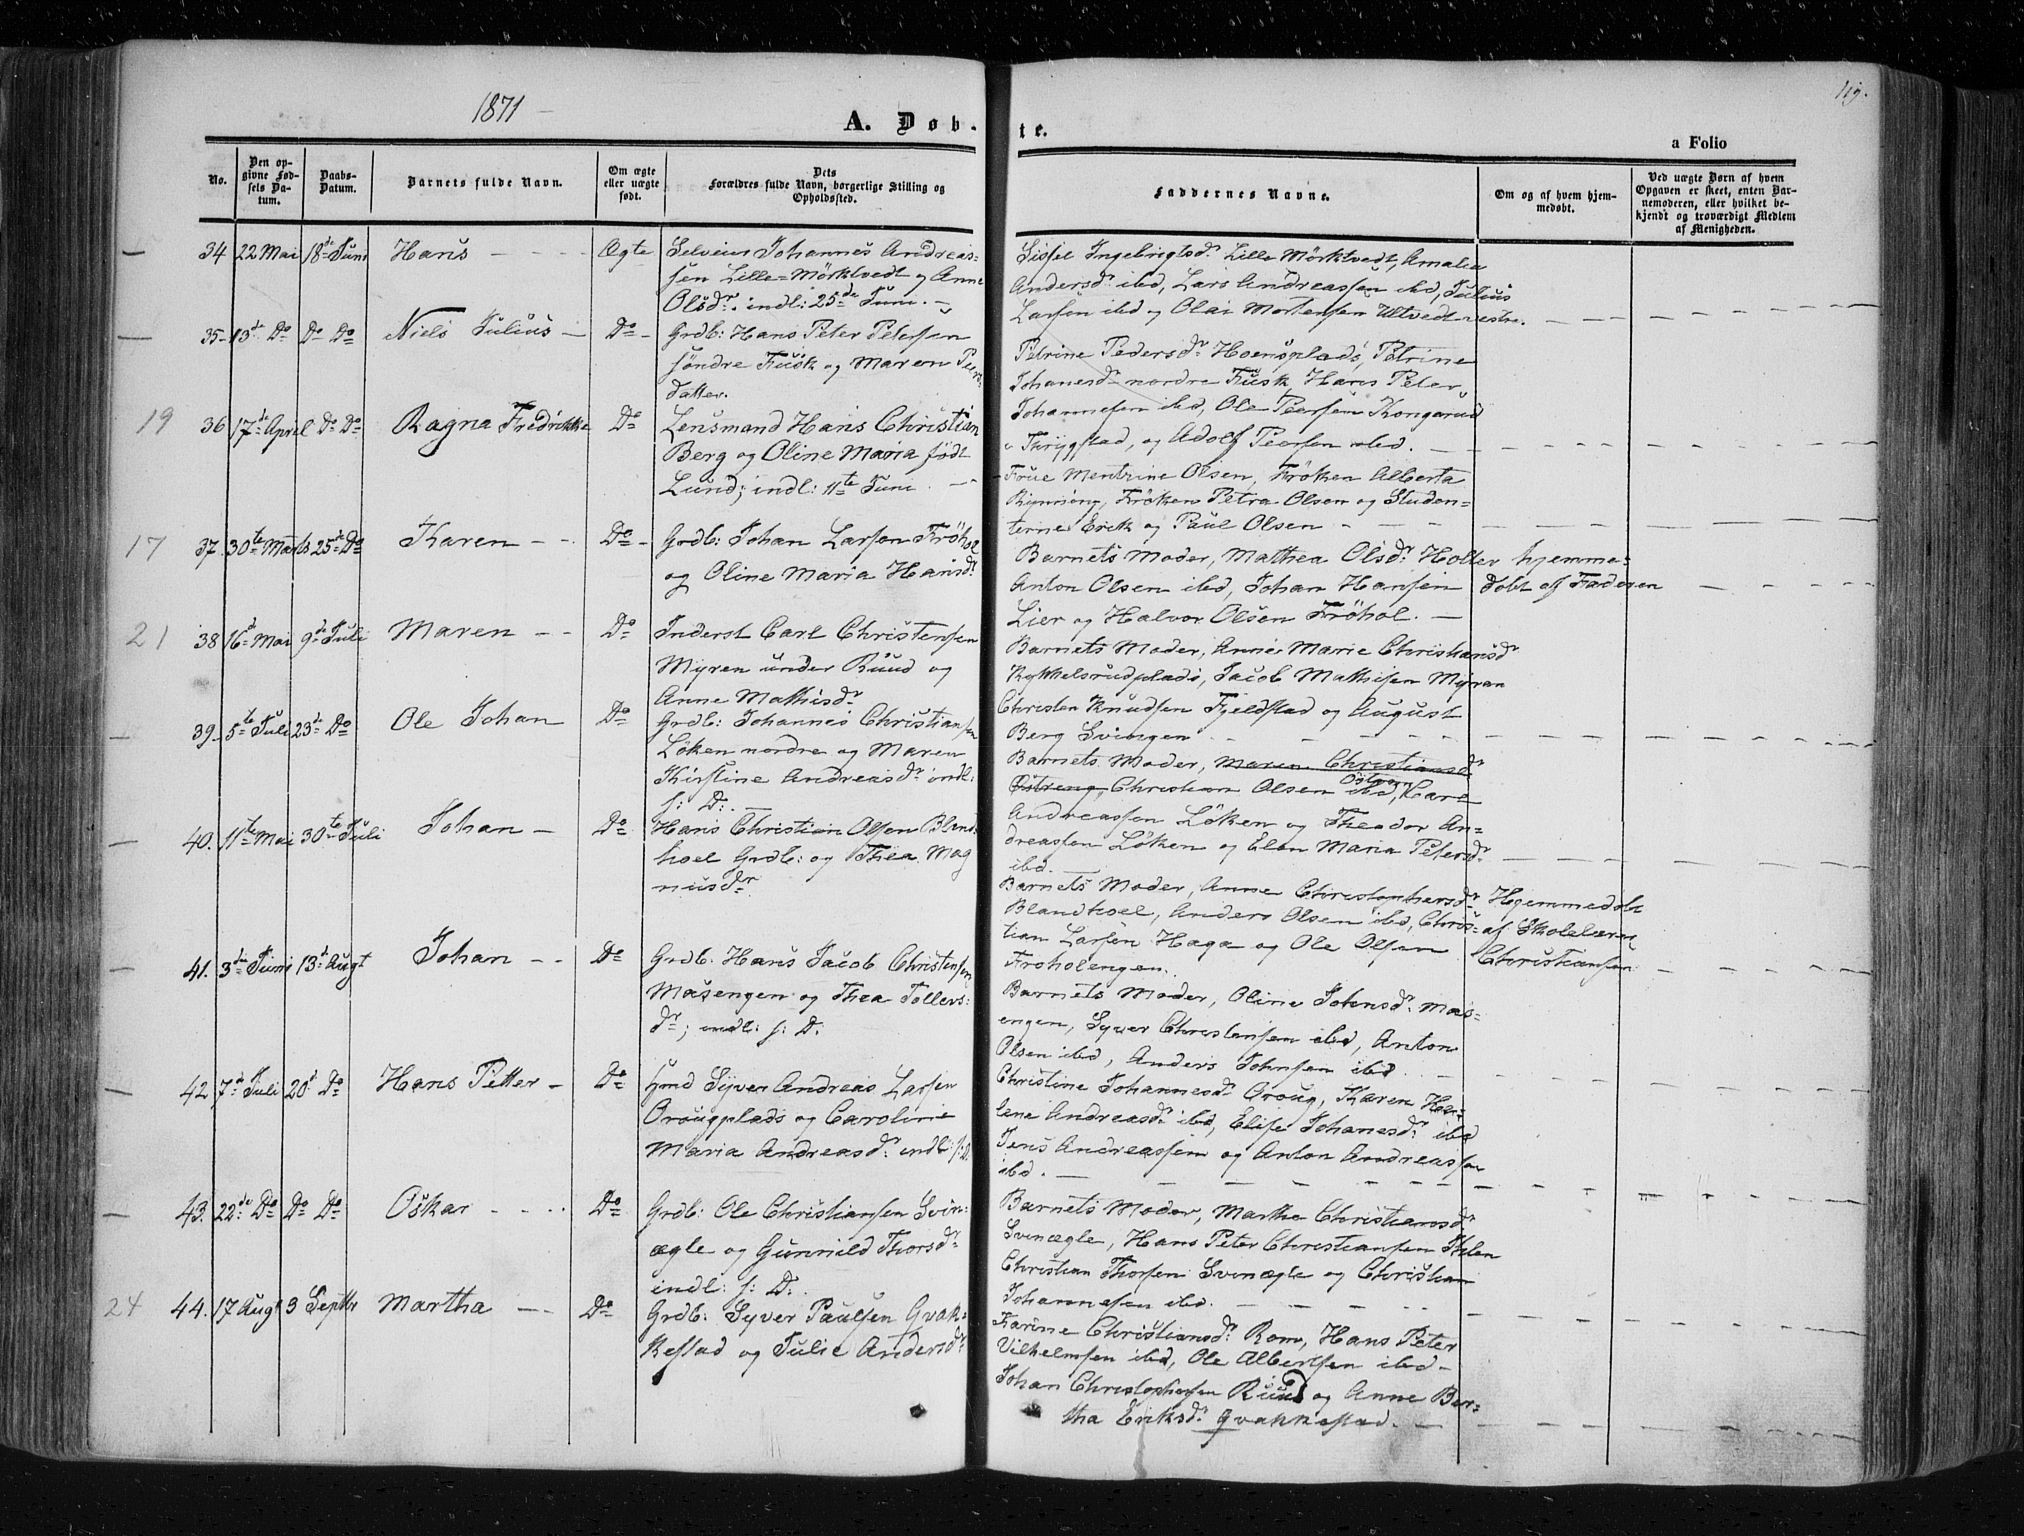 1871 —
119.
A. Døb-
te.
a Folio
No.
Den op-
givne Fød-
sels Da-
tum.
Daabs-
Datum.
Barnets fulde Navn.
Om ægte
eller uægte
født.
Dets
Forældres fulde Navn, borgerlige Stilling og
Opholdssted.
Faddernes Navne.
Om og af hvem hjem-
medøbt.
Ved uægte Børn af hvem
Opgaven er skeet, enten Bar-
nemoderen, eller hvilket be-
kjendt og troværdigt Medlem
af Menigheden.
34 22 Mai 18de Juni Hans Ægte
Selveier Johannes Andreas-
sen Lille-Mörktvedt og Anne
Olsdr. indl: 25de Juni. —
Sissel Ingebrigtsdr. Lille Mörktvedt, Amalia
Andersdr. ibd, Lars Andreassen ibd, Julius
Larsen ibd og Olai Mortensen Utvedt vestre.
35 13de Do Do Do Niels Julius Do
Grdb: Hans Peter Petersen
söndre Fusk og Maren Peers-
datter.
Petrine Pedersdr. Hoensplads, Petrine
Johanesdr. nordre Fusk, Hans Peter
Johannesen ibd, Ole Peersen Kongsrud
i Thrygstad, og Adolf Peersen ibd.
19 36 17de April Do Do Ragna Fredrikke Do
Lensmand Hans Christian
Berg og Oline Maria födt
Lund; indl: 11te Juni.
Frue Mentzine Olsen, Fröken Alberta
Rynning, Fröken Petra Olsen og Studen-
terne Erik og Paul Olsen
17 37. 30te Marts 25de Do Karen Do
Grdb: Johan Larsen Fröhol
og Oline Maria Hansdr.
Barnets Moder, Mathea Olsdr. Holter
Anton Olsen ibd, Johan Hansen
Lier og Halvor Olsen Fröhol.
hjemme-
döbt af Faderen
21 38 16de Mai 9de Juli Maren Do
Inderst Carl Christensen
Myren under Ruud og
Anne Mathisdr.
Barnets Moder, Anne Marie Christiansdr.
Kykkelsrudplads, Jacob Mathisen Myren
Christen Knudsen Fjeldstad og August
Berg Svingen
39. 5te Juli 23de Do Ole Johan Do
Grdb: Johannes Christiansen
Löken nordre og Maren
Kirstine Andreasdr. indl:
s: D:
Barnets Moder, Maren Christiansdr.
Östreng, Christian Olsen ibd, Karl
Andreassen Löken og Theodor An-
dreassen Löken og Elen Maria Petersdr.
ibd.
40. 11te Mai 30te Juli Johan Do
Hans Christian Olsen Bland-
hoel Grdb: og Thea Mag-
nusdr.
Barnets Moder, Anne Christophersdr.
Blandhoel, Anders Olsen ibd, Chris-
tian Larsen Haga og Ole Olsen
Froholengen.
Hjemmedöbt
af Skolelærer
Christiansen
41. 3de Juni 13de Augt Johan Do
Grdb. Hans Jacob Christensen
Masengen og Thea Tollers-
dr; indl: s: D:
Barnets Moder, Oline Johnsdr. Mas-
engen, Syver Christensen ibd, Anton
Olsen ibd, Anders Johnsen ibd
42 7de Juli 20de Do Hans Petter Do
Hmd Syver Andreas Larsen
Orougplads og Caroline
Maria Andreasdr. indl: s: D.
Christine Johannesdr. Oroug, Karen Hen-
lene Andreasdr. ibd, Elise Johanesdr. ibd
Jens Andreassen og Anton Andreassen
ibd.
43. 22de Do Do Do Oskar Do
Grdb: Ole Christiansen Svin-
ægle og Gunnild Thorsdr.
indl: s: D:
Barnets Moder, Marthe Christiansdr.
Svinægle, Hans Peter Christiansen Ihlen
Christian Thorsen Svinægle og Christian
Johannesen ibd.
24 44. 17 Augt 3 Septbr Martha Do
Grdb: Syver Paulsen Qvak-
kestad og Julie Andersdr.
Karine Christiansdr. Rom, Hans Peter
Vilhelmsen ibd, Ole Albertsen ibd —
Johan Christophersen Ruud og Anne Ber-
tha Eriksdr. Qvakkestad.